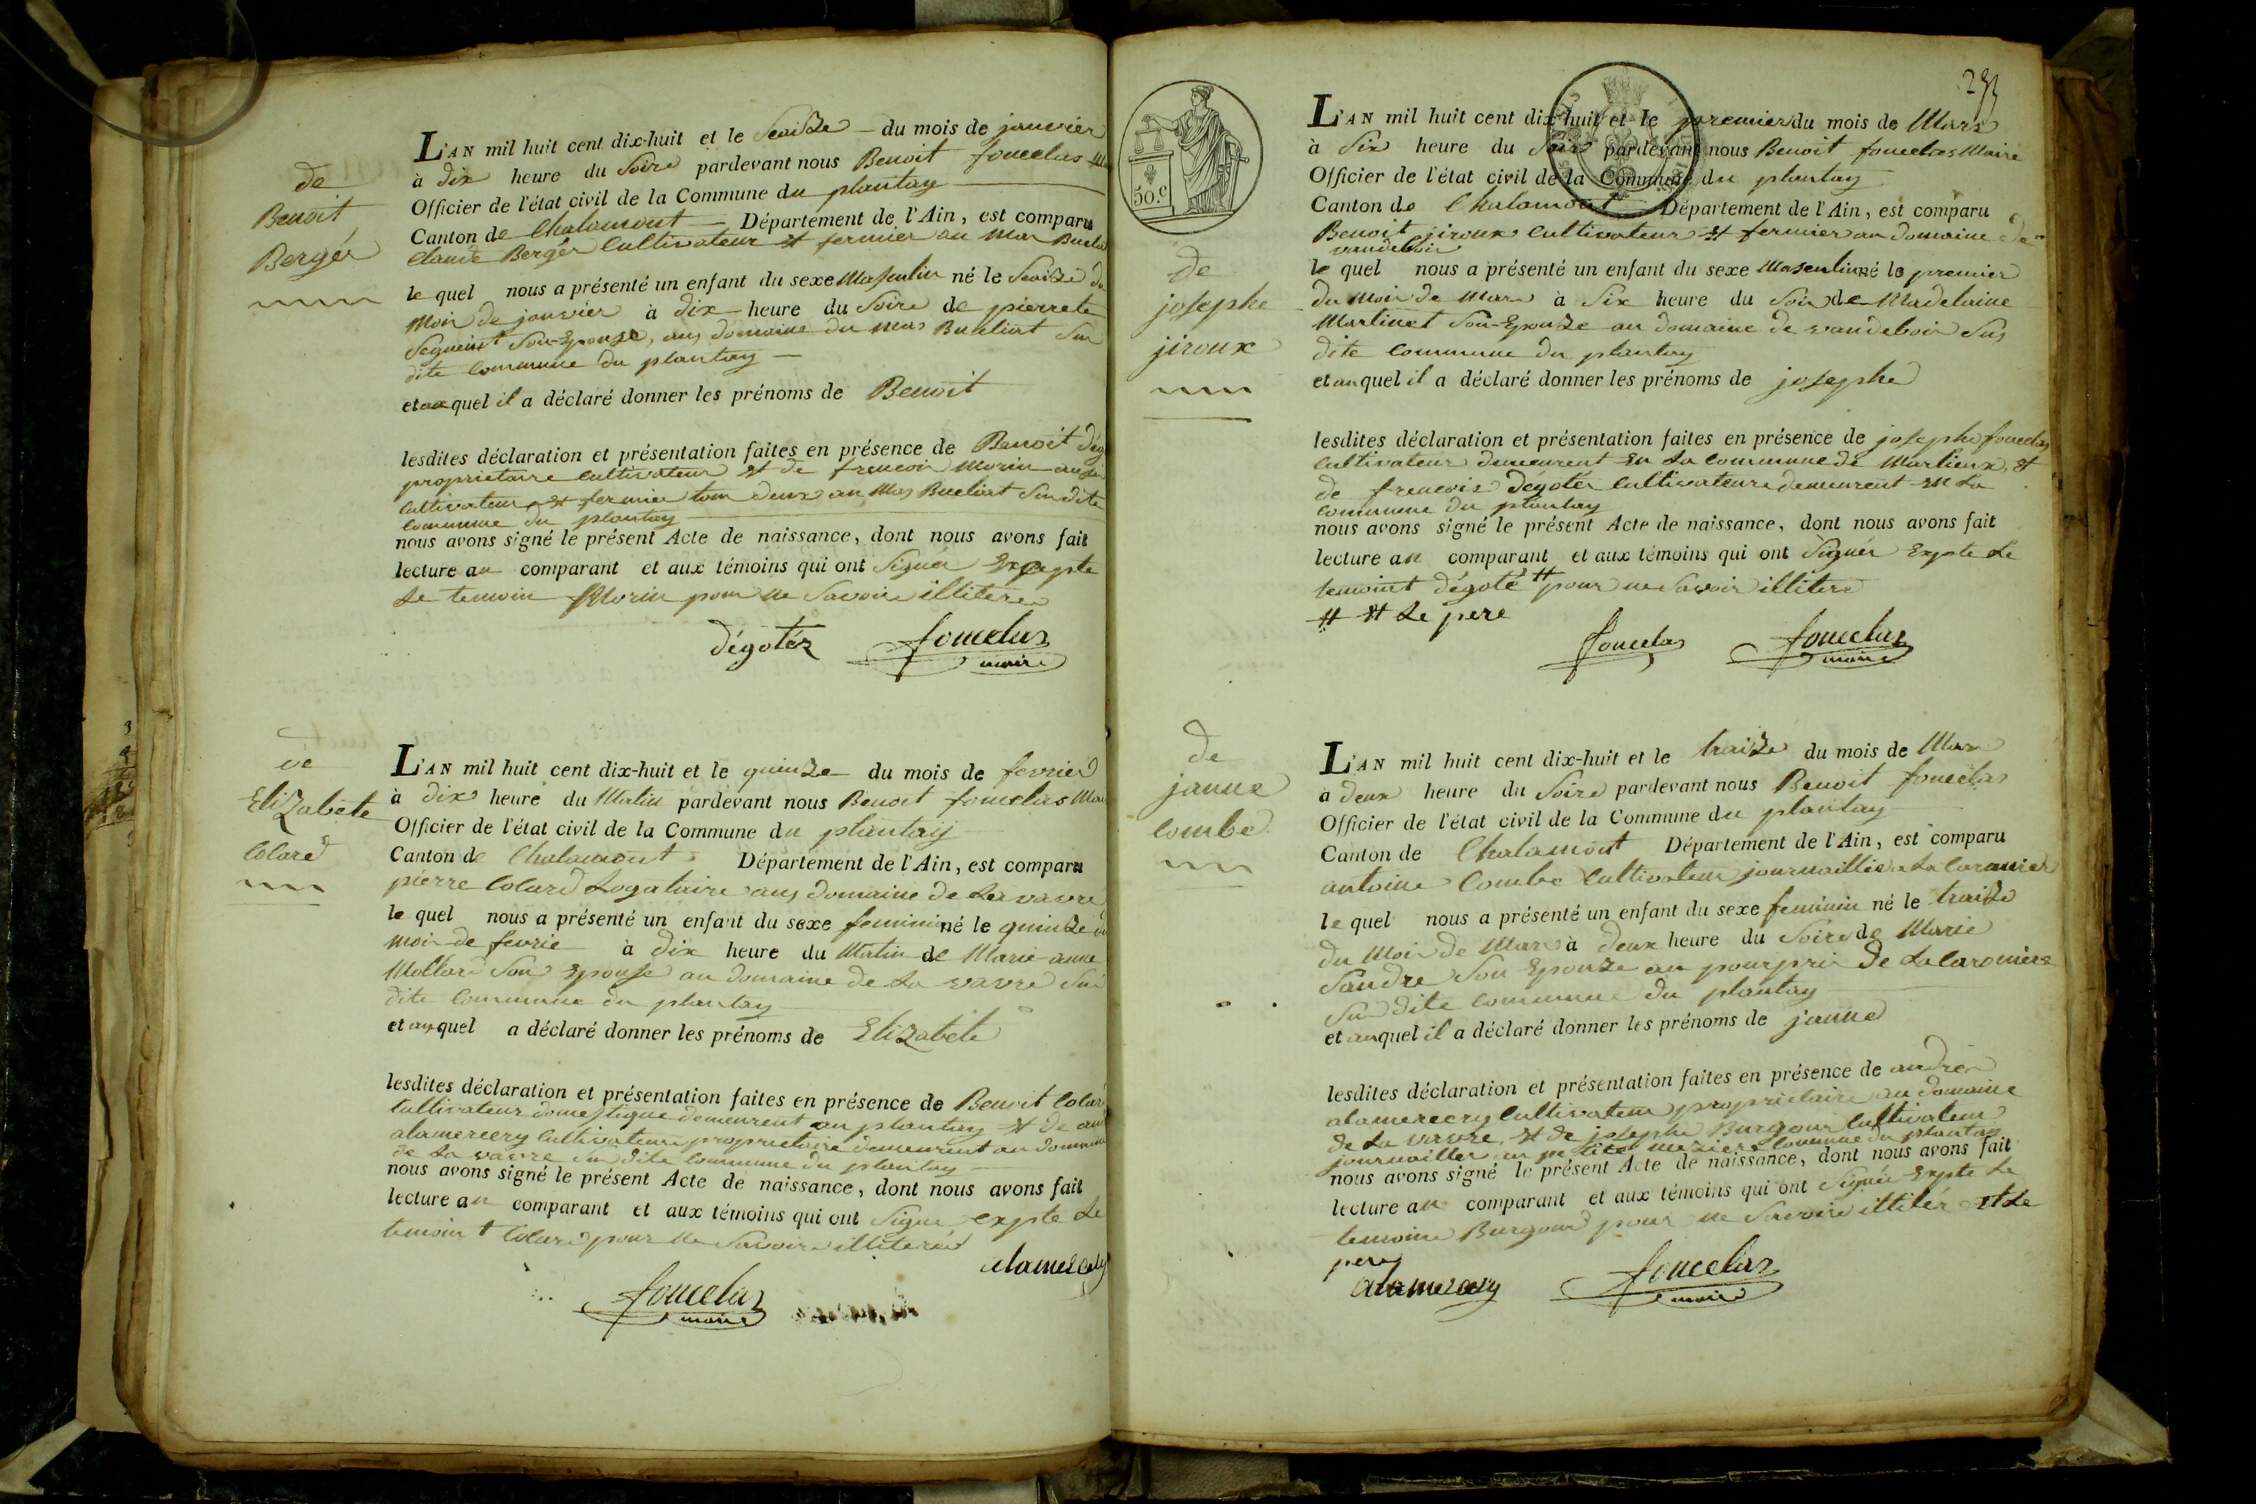 de
Benoit
Bergér
L'AN mil huit cent dix-huit et le Seaize du mois de janvier
à dix heure du Soire pardevant nous Benoit fouuelas
Officier de l'état civil de la Commune du plantay
Canton de Chalamont Département de l'Ain, est comparu
Claude Bergér Cultivateur et fermier au Mas
le quel nous a présenté un enfant du sexe Masculin né le Seaize du
Mois de janvier à dix heure du Soire de pierrete
Son Epouze, aus domaine du Mas Bucliat Sus
dite commune du plantay
et au quel il a déclaré donner les prénoms de Benoit
lesdites déclaration et présentation faites en présence de Benoit
proprietaire Cultivateur et de francois Morin
Cultivateur et fermier tous deux au Mas Bucliat Sus dite
Commune du plantay
nous avons signé le présent Acte de naissance, dont nous avons fait
lecture au comparant et aux témoins qui ont Signér Exepte
Le temoin Morin pour ne Savoire illiterer
dégotéz fouuelas
maire
de
Elizabete
Colard
L'AN mil huit cent dix-huit et le quinze du mois de fevrier
à dix heure du Matin pardevant nous Benoit fouuelas
Officier de l'état civil de la Commune du plantay
Canton de Chalamont Département de l'Ain, est comparu
pierre Colard Logataire aus domaine de La vavre
le quel nous a présenté un enfant du sexe feminin né le quinze du
mois de fevrie à dix heure du Matin de Marie anne
Mollard Son Epouse au domaine de La vavre Sus
dite Commune du plantay
et au quel a déclaré donner les prénoms de Elizabete
lesdites déclaration et présentation faites en présence de Benoit Colard
Cultivateur domestique demeurent au plantay et de
alamercery Cultivateur proprietaire demeurent au domaine
de La vavre Sus dite Commune du plantay
nous avons signé le présent Acte de naissance, dont nous avons fait
lecture au comparant et aux témoins qui ont Signe exepte Le
temoint Colard pour ne Savoire illiterér
alamercery
fouuelas
maire
50.c
de
josephe
jiroux
L'AN mil huit cent dix-huit et le premier du mois de Mars
à Six heure du Soire pardevant nous Benoit fouuelas Maire
Officier de l'état civil de la Commune du plantay
Canton de Chalamont Département de l'Ain, est comparu
Benoit jiroux Cultivateur et fermier au domaine de
vandeboir
le quel nous a présenté un enfant du sexe Masculin né le premier
du Mois de Mars à Six heure du Soir de Madelaine
Martinet Son Epouze au domaine de vandeboir Sus
dite commune du plantay
et au quel il a déclaré donner les prénoms de josephe
lesdites déclaration et présentation faites en présence de josephe fouuelas
Cultivateur demeurent En La commune de Marlieux, et
de francois dégotér Cultivateure demeurent En La
commune du plantay
nous avons signé le présent Acte de naissance, dont nous avons fait
lecture au comparant et aux témoins qui ont Signér Expte Le
temoint dégoté # pour ne Savoir illitere
# et Le pere
fouuelas fouuelas
maire
de
janne
Combe
L'AN mil huit cent dix-huit et le traize du mois de Mars
à deux heure du Soire pardevant nous Benoit fouuelas
Officier de l'état civil de la Commune du plantay
Canton de Chalamont Département de l'Ain, est comparu
antoine Combe Cultivateur journaillier
le quel nous a présenté un enfant du sexe feminin né le traize
du Mois de Mars à deux heure du Soire de Marie
Sandre Son Epouze au pourpris De La Caroniere
Sus dite commune du plantay
et au quel il a déclaré donner les prénoms de janne
lesdites déclaration et présentation faites en présence de andrér
alamercery Cultivateur proprietaire au domaine
de La vavre, et de josephe Burgour Cultivateur
journaillier commune du plantay
nous avons signé le présent Acte de naissance, dont nous avons fait
lecture au comparant et aux témoins qui ont Signér Expte Le
temoint Burgour pour ne Savoire illitér et Le
pere
alamercery fouuelas
maire